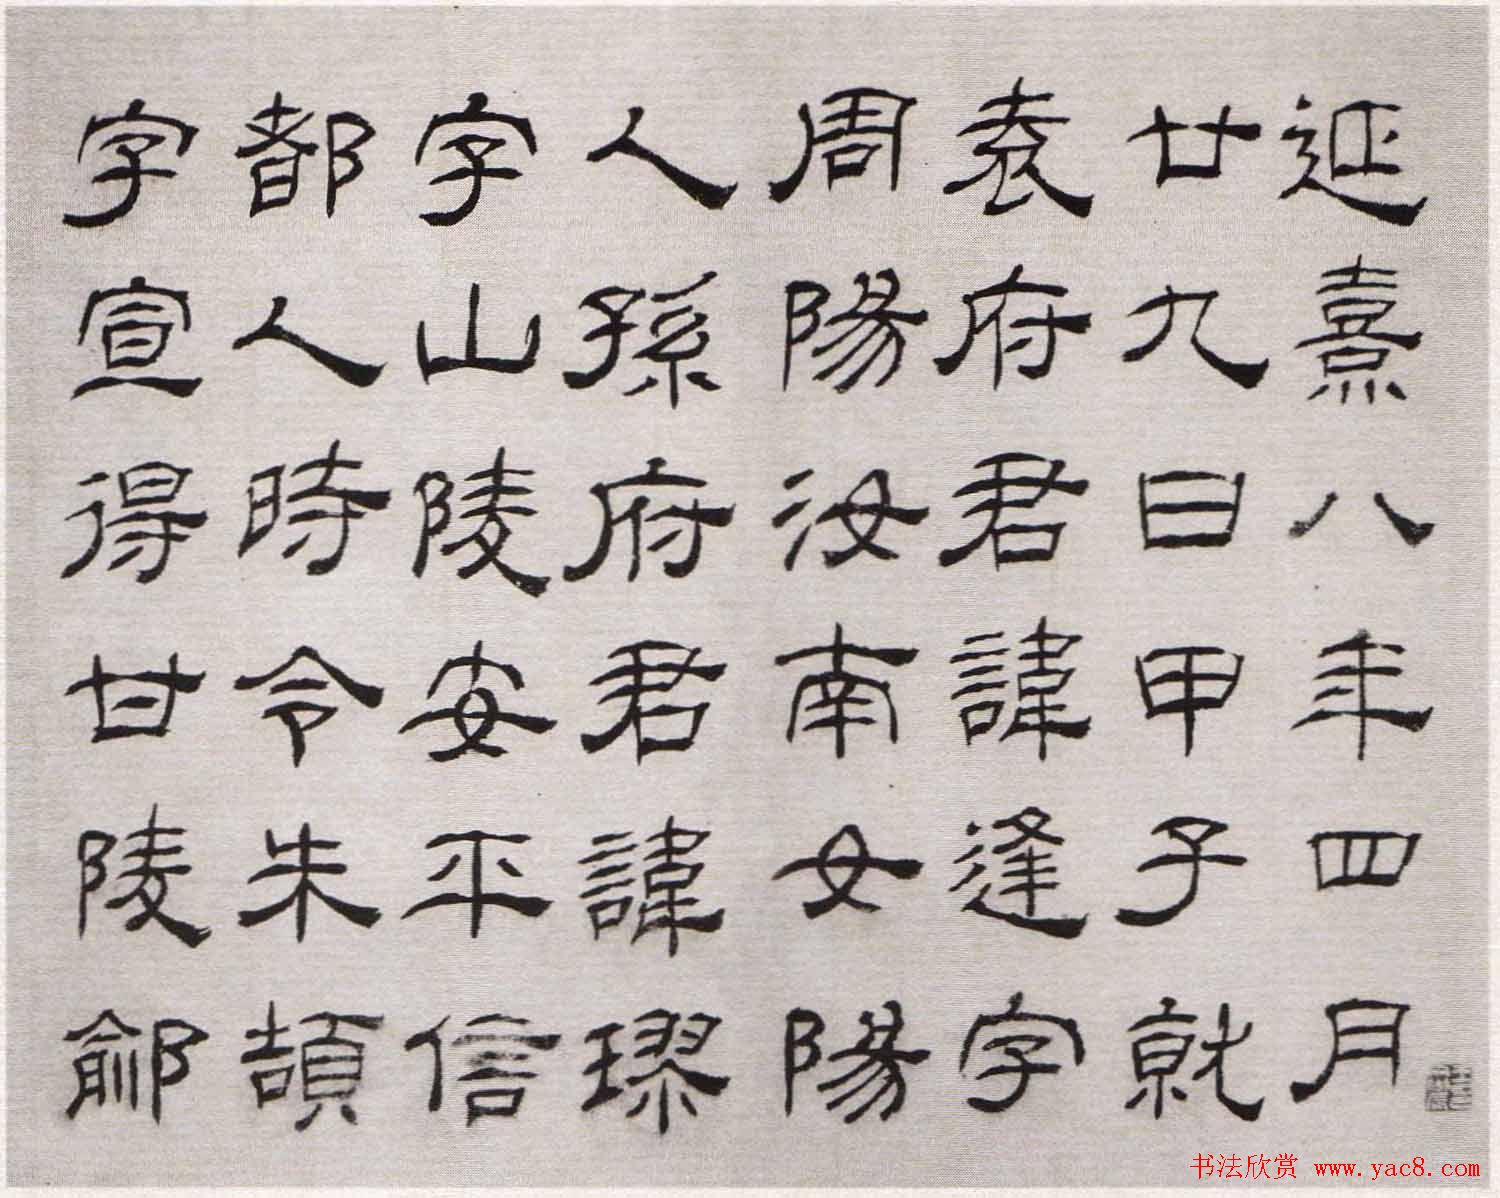 延熹八年四月
廿九日甲子就
袁府君諱逢字
周陽汝南女陽
人孫府君諱璆
字山陵安平信
都人時令朱頡
字宣得甘陵鄃
书法欣赏 www.yac8.com